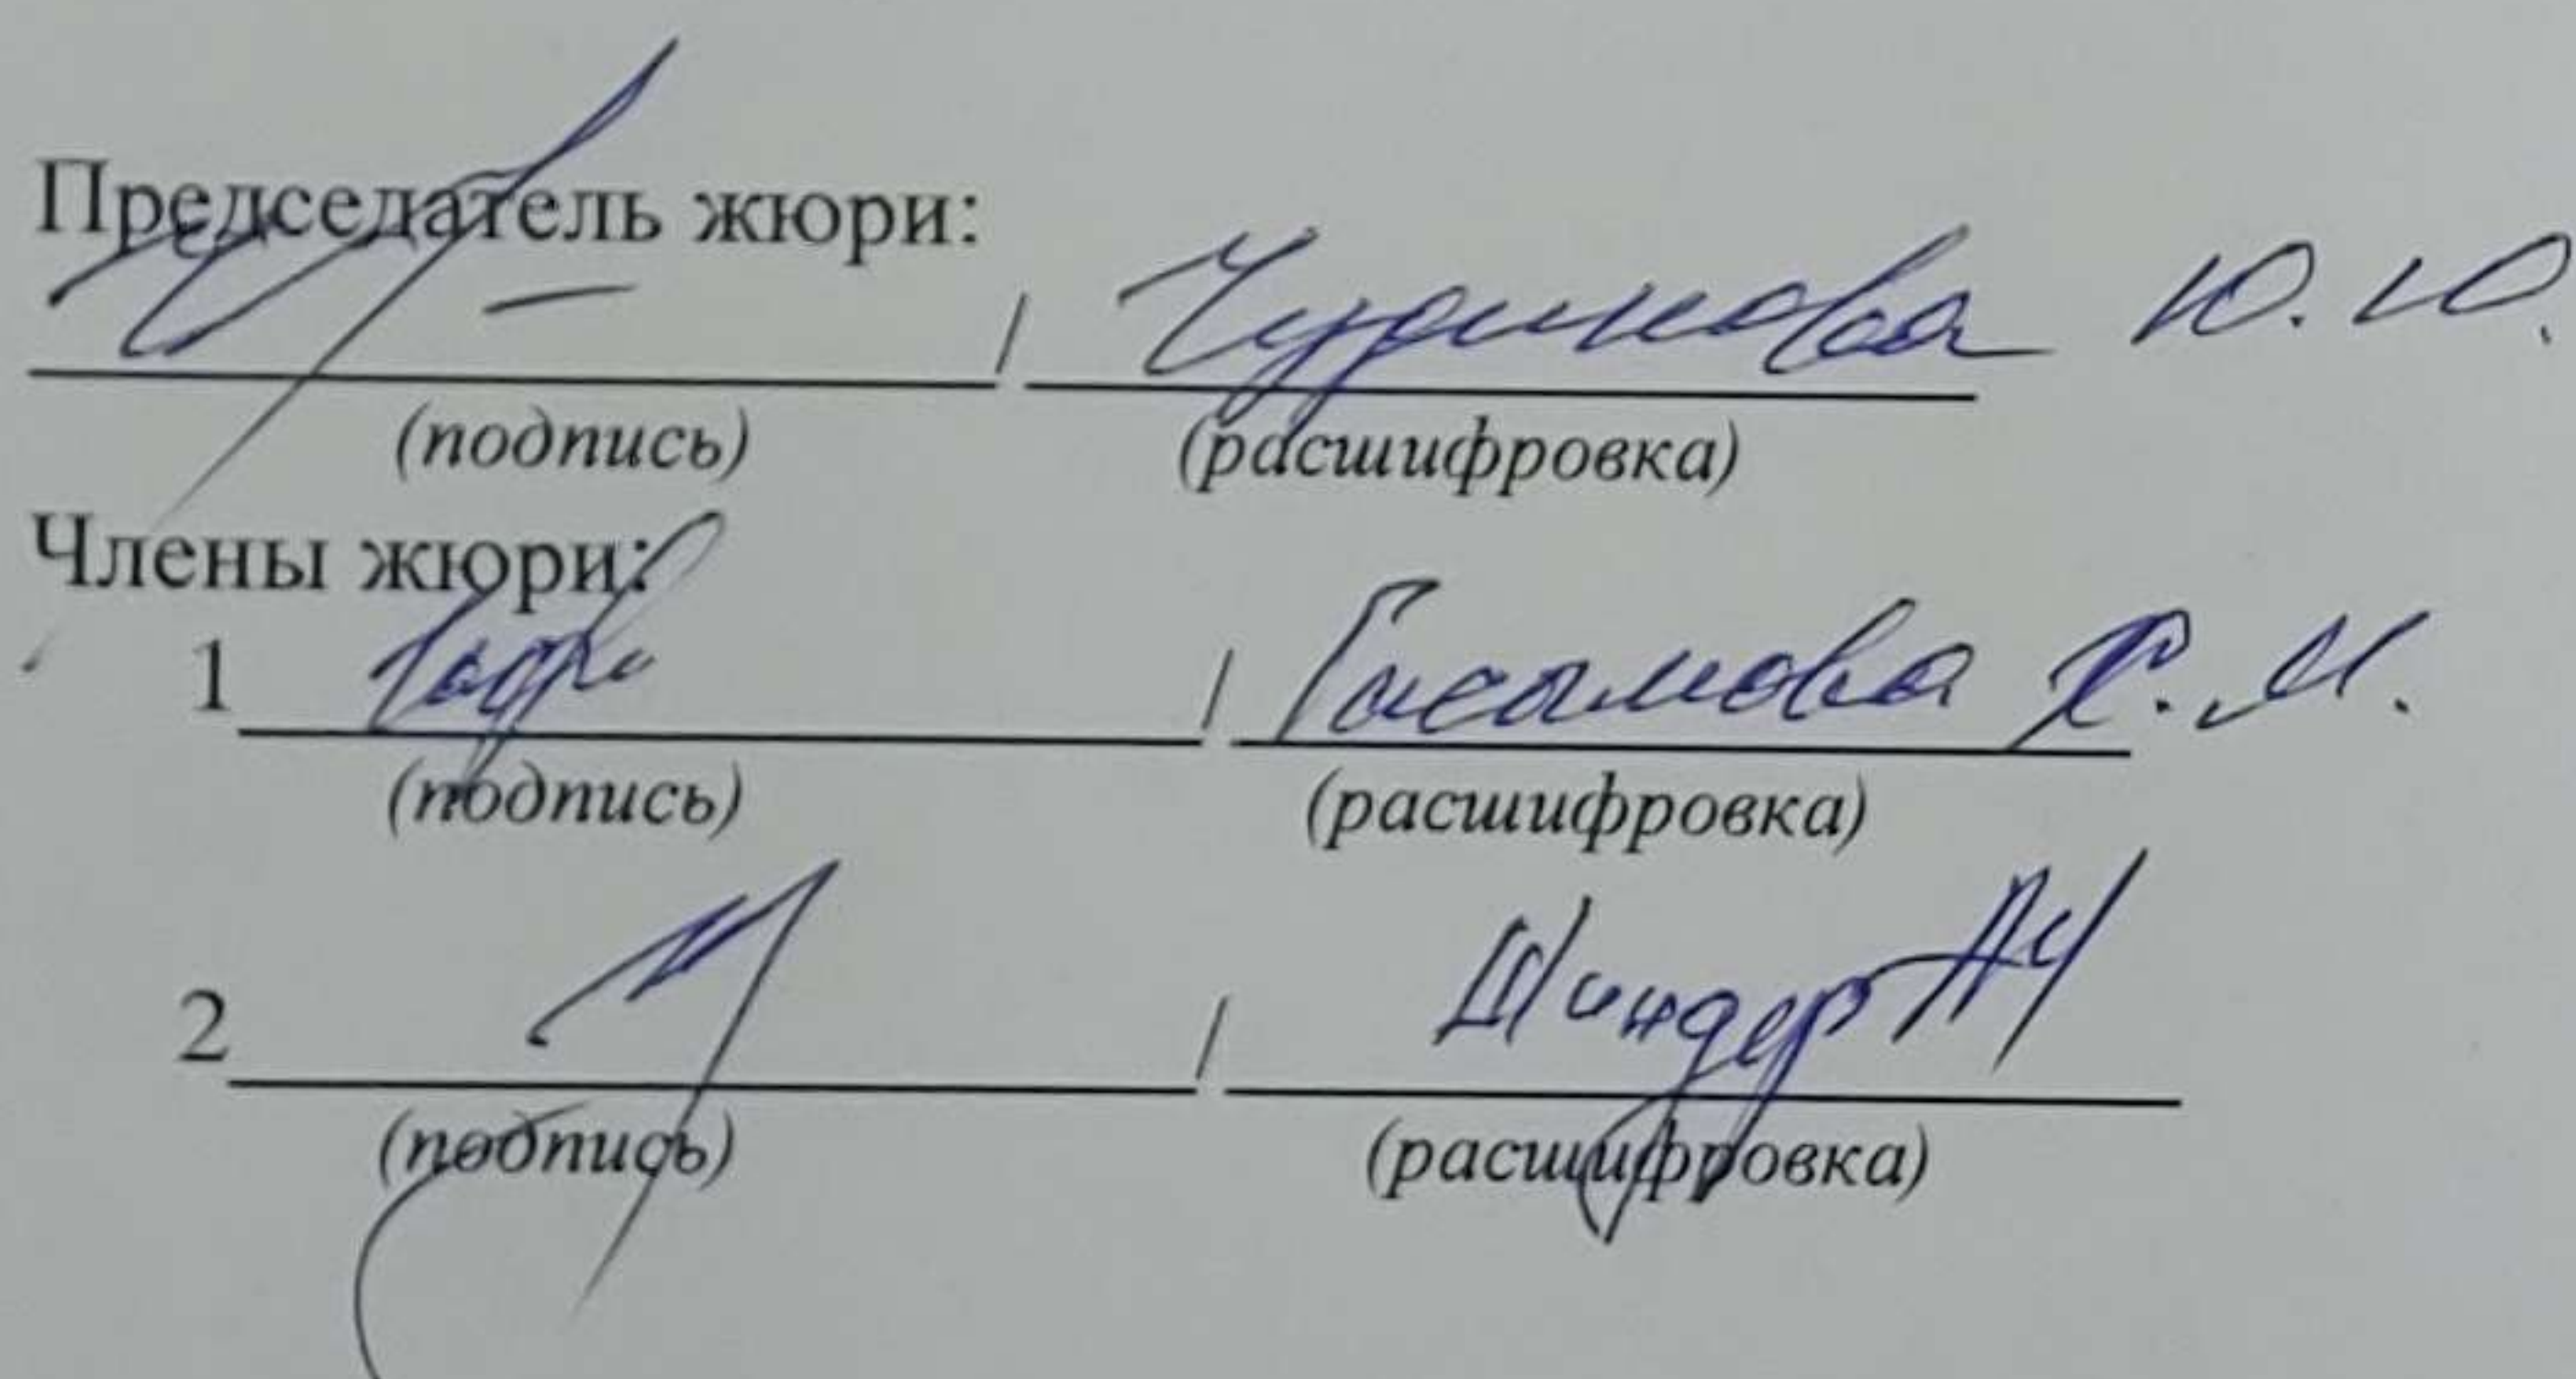 Председатель жюри:
/ Чудинова Ю. Ю.
(подпись) (расшифровка)
Члены жюри:
1 / Гасымова Х. М.
(подпись) (расшифровка)
2 / Шиндер
(подпись) (расшифровка)